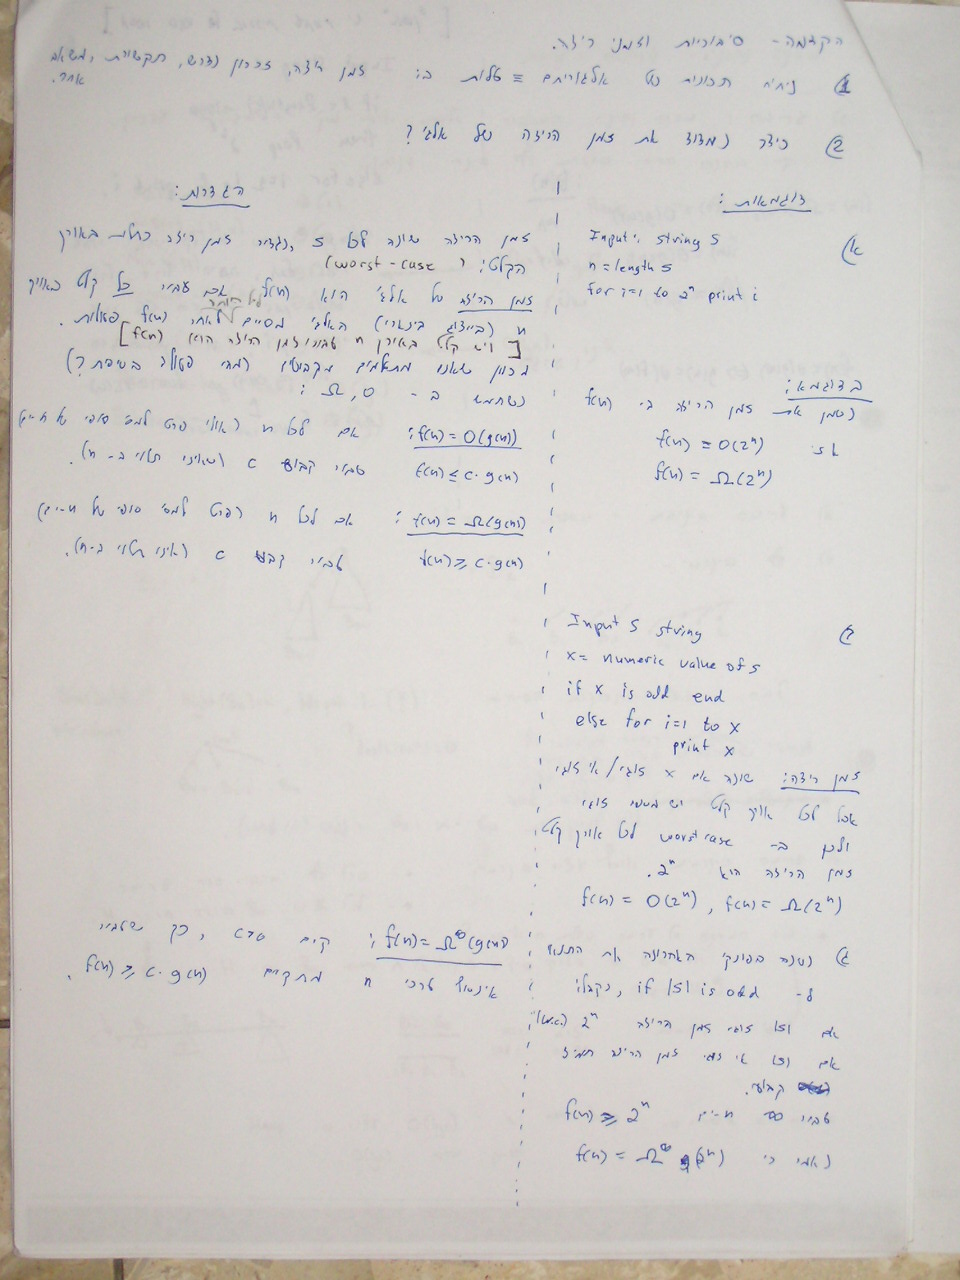 הקדמה - סיבוכיות וזמני ריצה.
1) ניתוח תכונות של אלגוריתם ≡ תלות ב: זמן ריצה, זכרון נדרש, תקשורת, משאב אחר.
2) כיצד נמדוד את זמן הריצה של אלג'?
דוגמאות:
א)
Input: string S
n = length s
for i=1 to 2^n print i
בדוגמא:
נסמן את זמן הריצה ב- f(n)
אז f(n) = O(2^n)
f(n) = Ω(2^n)
ב)
Input S string
x = numeric value of s
if x is odd end
else for i=1 to x
print x
זמן ריצה: שונה אם x זוגי/אי זוגי
אבל לכל אורך קלט יש מספר זוגי
ולכן ב- worst case לכל אורך קלט
זמן הריצה הוא 2^n.
f(n) = O(2^n), f(n) = Ω(2^n)
ג) נשנה בפונק' האחרונה את התנאי
ל- if |S| is odd, נקבל:
אם |s| זוגי זמן הריצה 2^n (w.c.)
אם |s| אי זוגי זמן הריצה תמיד
קבוע.
עבור ∞ n-ים f(n) ≥ 2^n
נאמר כי f(n) = Ω^∞(2^n)
הגדרות:
זמן הריצה שונה לכל S, נגדיר זמן ריצה כתלות באורך
הקלט: (worst-case)
זמן הריצה של אלג' הוא f(n) אם עבור כל קלט באורך
n (בייצוג בינארי) האלג' מסיים לכל היותר לאחר f(n) פעולות.
[ויש קלט באורך n שעבורו זמן הריצה הוא f(n)]
מכיוון שאנו מתעלמים מקבועים (מהי פעולה בסיסית?)
נשתמש ב- O, Ω:
f(n) = O(g(n)): אם לכל n (אולי פרט למס' סופי של n-ים)
f(n) ≤ c·g(n) עבור קבוע c (שאינו תלוי ב-n).
f(n) = Ω(g(n)): אם לכל n (פרט למס' סופי של n-ים)
f(n) ≥ c·g(n) עבור קבוע c (אינו תלוי ב-n).
f(n) = Ω^∞(g(n)): קיים c>0, כך שעבור
אינסוף ערכי n מתקיים f(n) ≥ c·g(n).